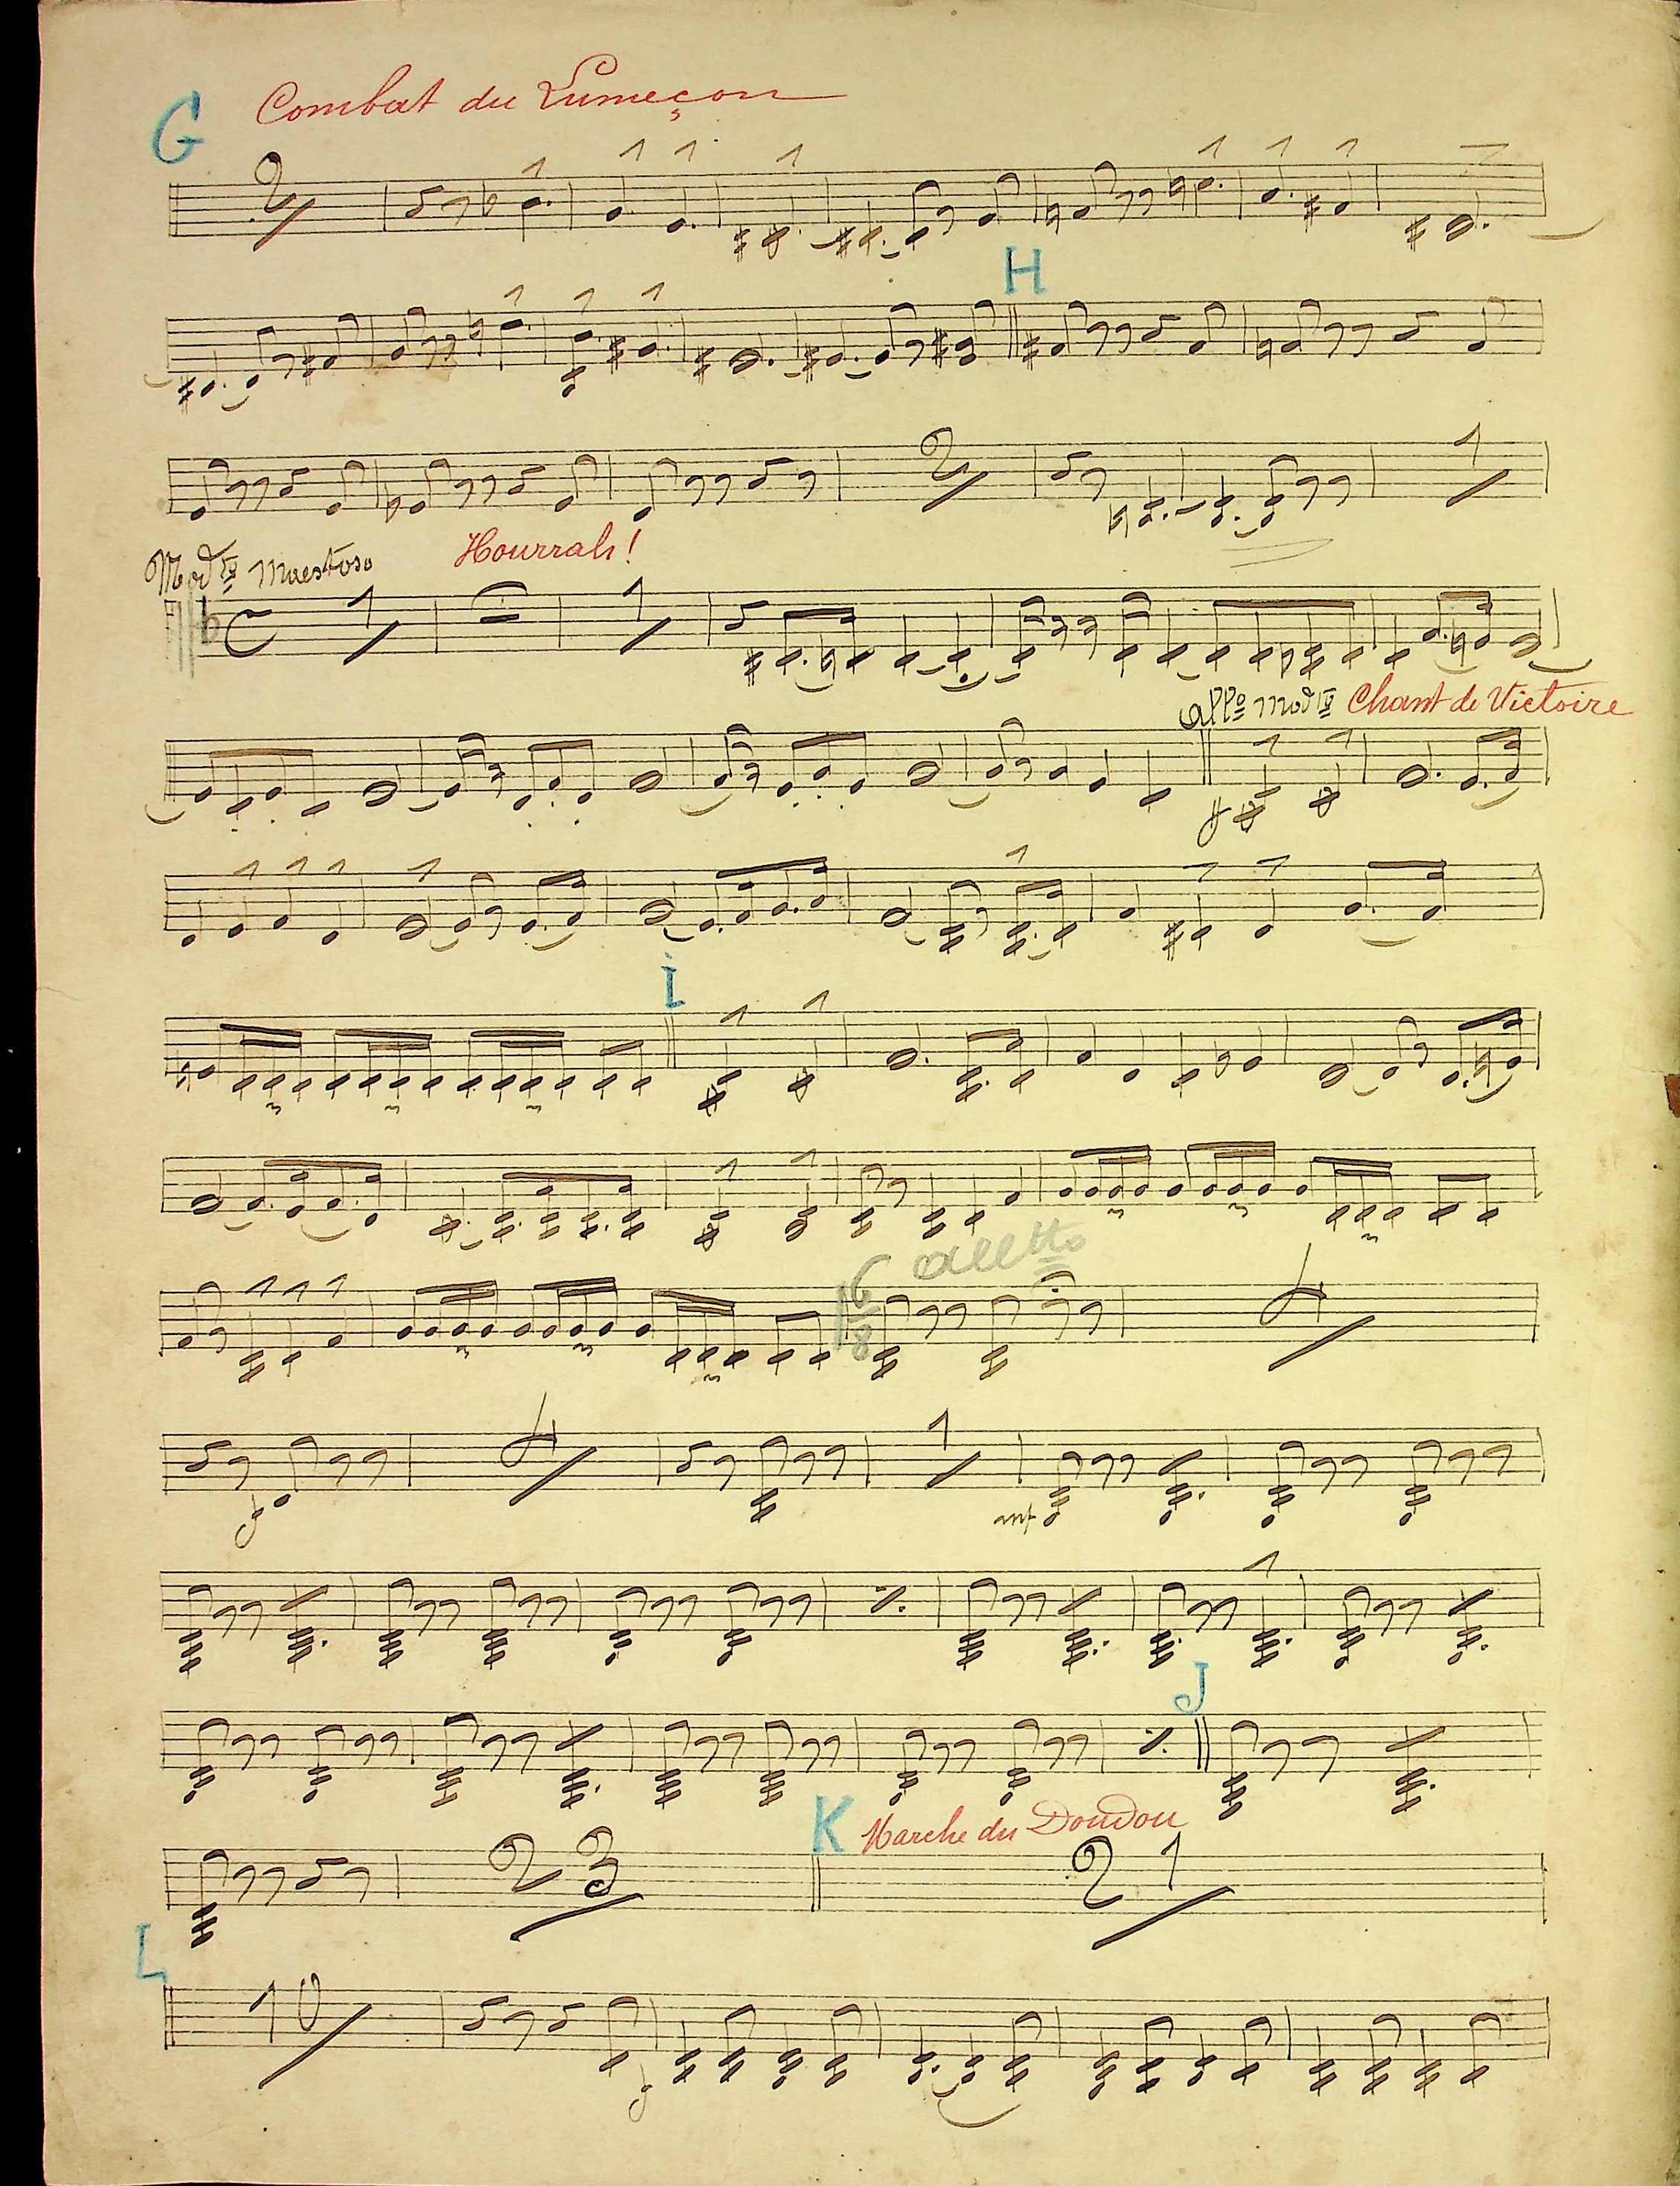 G Combat du Lumeçon
2
H
2 1
Modto Maestoso Hourrah!
C 1 1
Allo Modto Chant de Victoire
ff
I
6/8 Alltto
4
f 4 1 mf
J
K Marche du Doudou
23 21
L
10
f